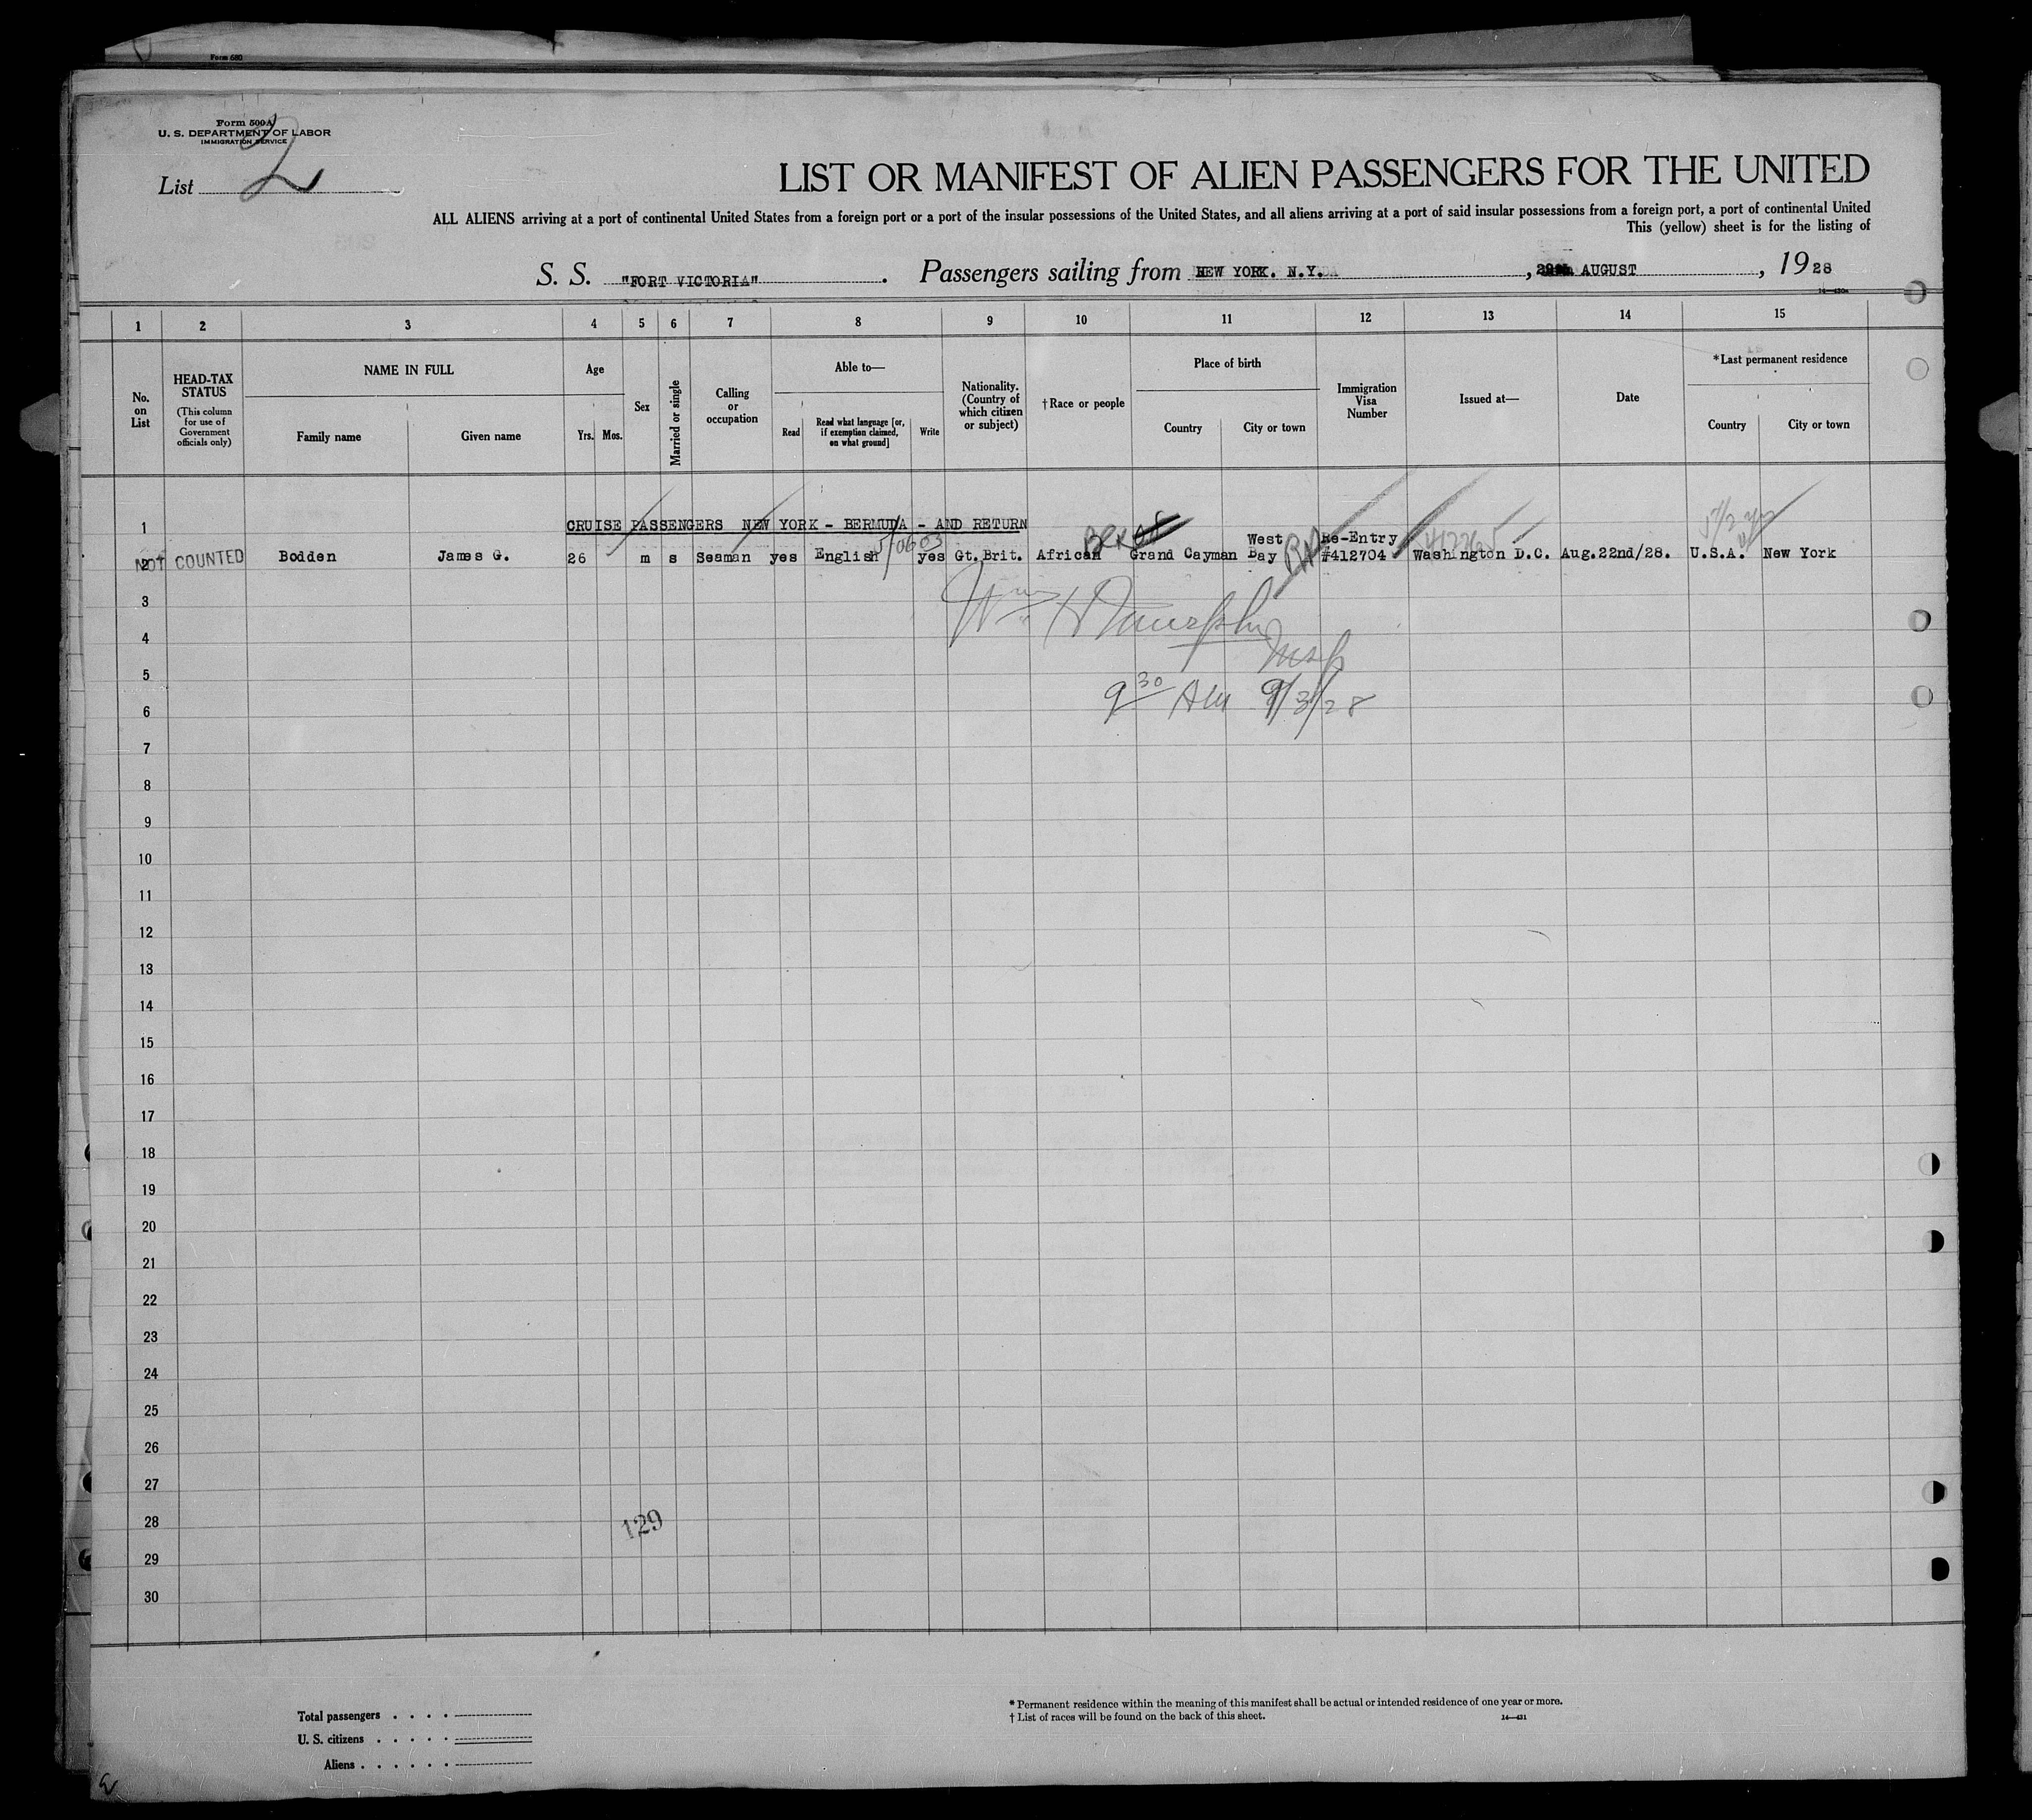 Form 680
Form 500A
U. S. DEPARTMENT OF LABOR
IMMIGRATION SERVICE
List 2
LIST OR MANIFEST OF ALIEN PASSENGERS FOR THE UNITED
ALL ALIENS arriving at a port of continental United States from a foreign port or a port of the insular possessions of the United States, and all aliens arriving at a port of said insular possessions from a foreign port, a port of continental United
This (yellow) sheet is for the listing of
S. S. "FORT VICTORIA". Passengers sailing from NEW YORK. N.Y., AUGUST, 1928
1 2 3 4 5 6 7 8 9 10 11 12 13 14 15
No. on List
HEAD-TAX STATUS (This column for use of Government officials only)
NAME IN FULL
Family name Given name
Age
Yrs. Mos.
Sex
Married or single
Calling or occupation
Able to—
Read
Read what language [or, if exemption claimed, on what ground]
Write
Nationality. (Country of which citizen or subject)
†Race or people
Place of birth
Country City or town
Immigration Visa Number
Issued at—
Date
*Last permanent residence
Country City or town
1 CRUISE PASSENGERS NEW YORK - BERMUDA - AND RETURN
2 NOT COUNTED Bodden James G. 26 m s Seaman yes English yes Gt.Brit. African Grand Cayman West Bay Re-Entry #412704 Washington D.C. Aug.22nd/28. U.S.A. New York
3
4
5
6
7
8
9
10
11
12
13
14
15
16
17
18
19
20
21
22
23
24
25
26
27
28
29
30
Wm H Murphy
Insp
9 30 AM 9/3/28
129
Total passengers
U. S. citizens
Aliens
* Permanent residence within the meaning of this manifest shall be actual or intended residence of one year or more.
† List of races will be found on the back of this sheet.
14—431